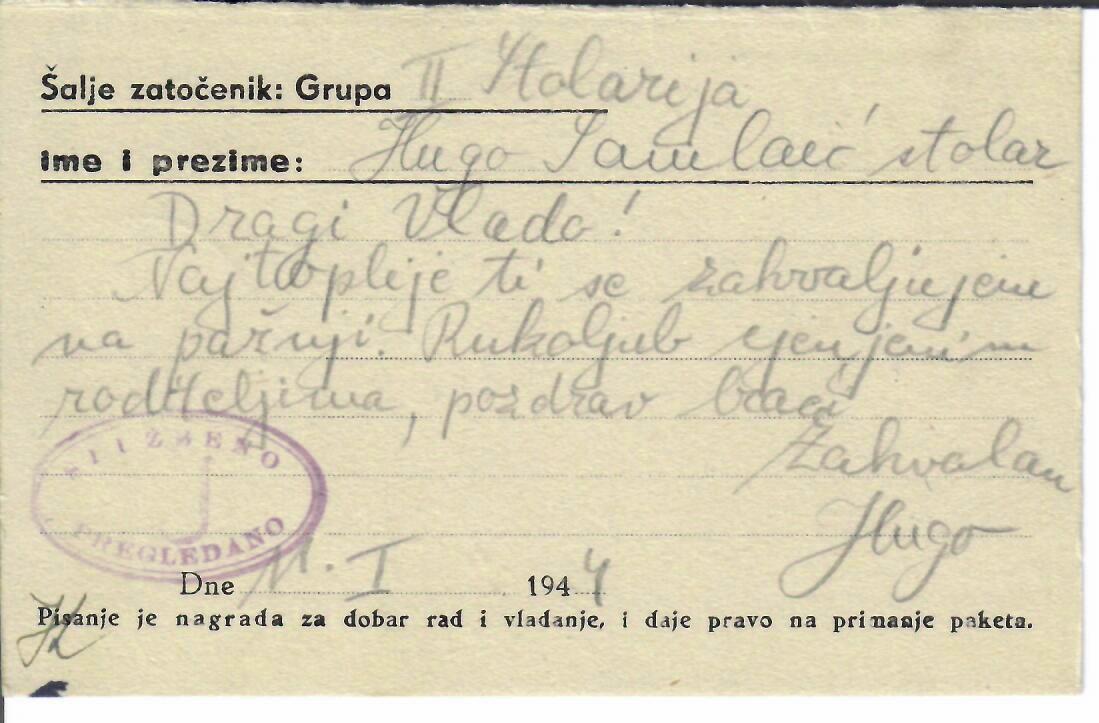 Šalje zatočenik: Grupa II Stolarija
Ime i prezime: Hugo Samlaić stolar
Dragi Vlado!
Najtoplije ti se zahvaljujem
na pažnji. Rukoljub cjenjenim
roditeljima, pozdrav braci
Zahvalan
Hugo
SLUŽBENO
PREGLEDANO
Dne 11. I 1944
Pisanje je nagrada za dobar rad i vladanje, i daje pravo na primanje paketa.